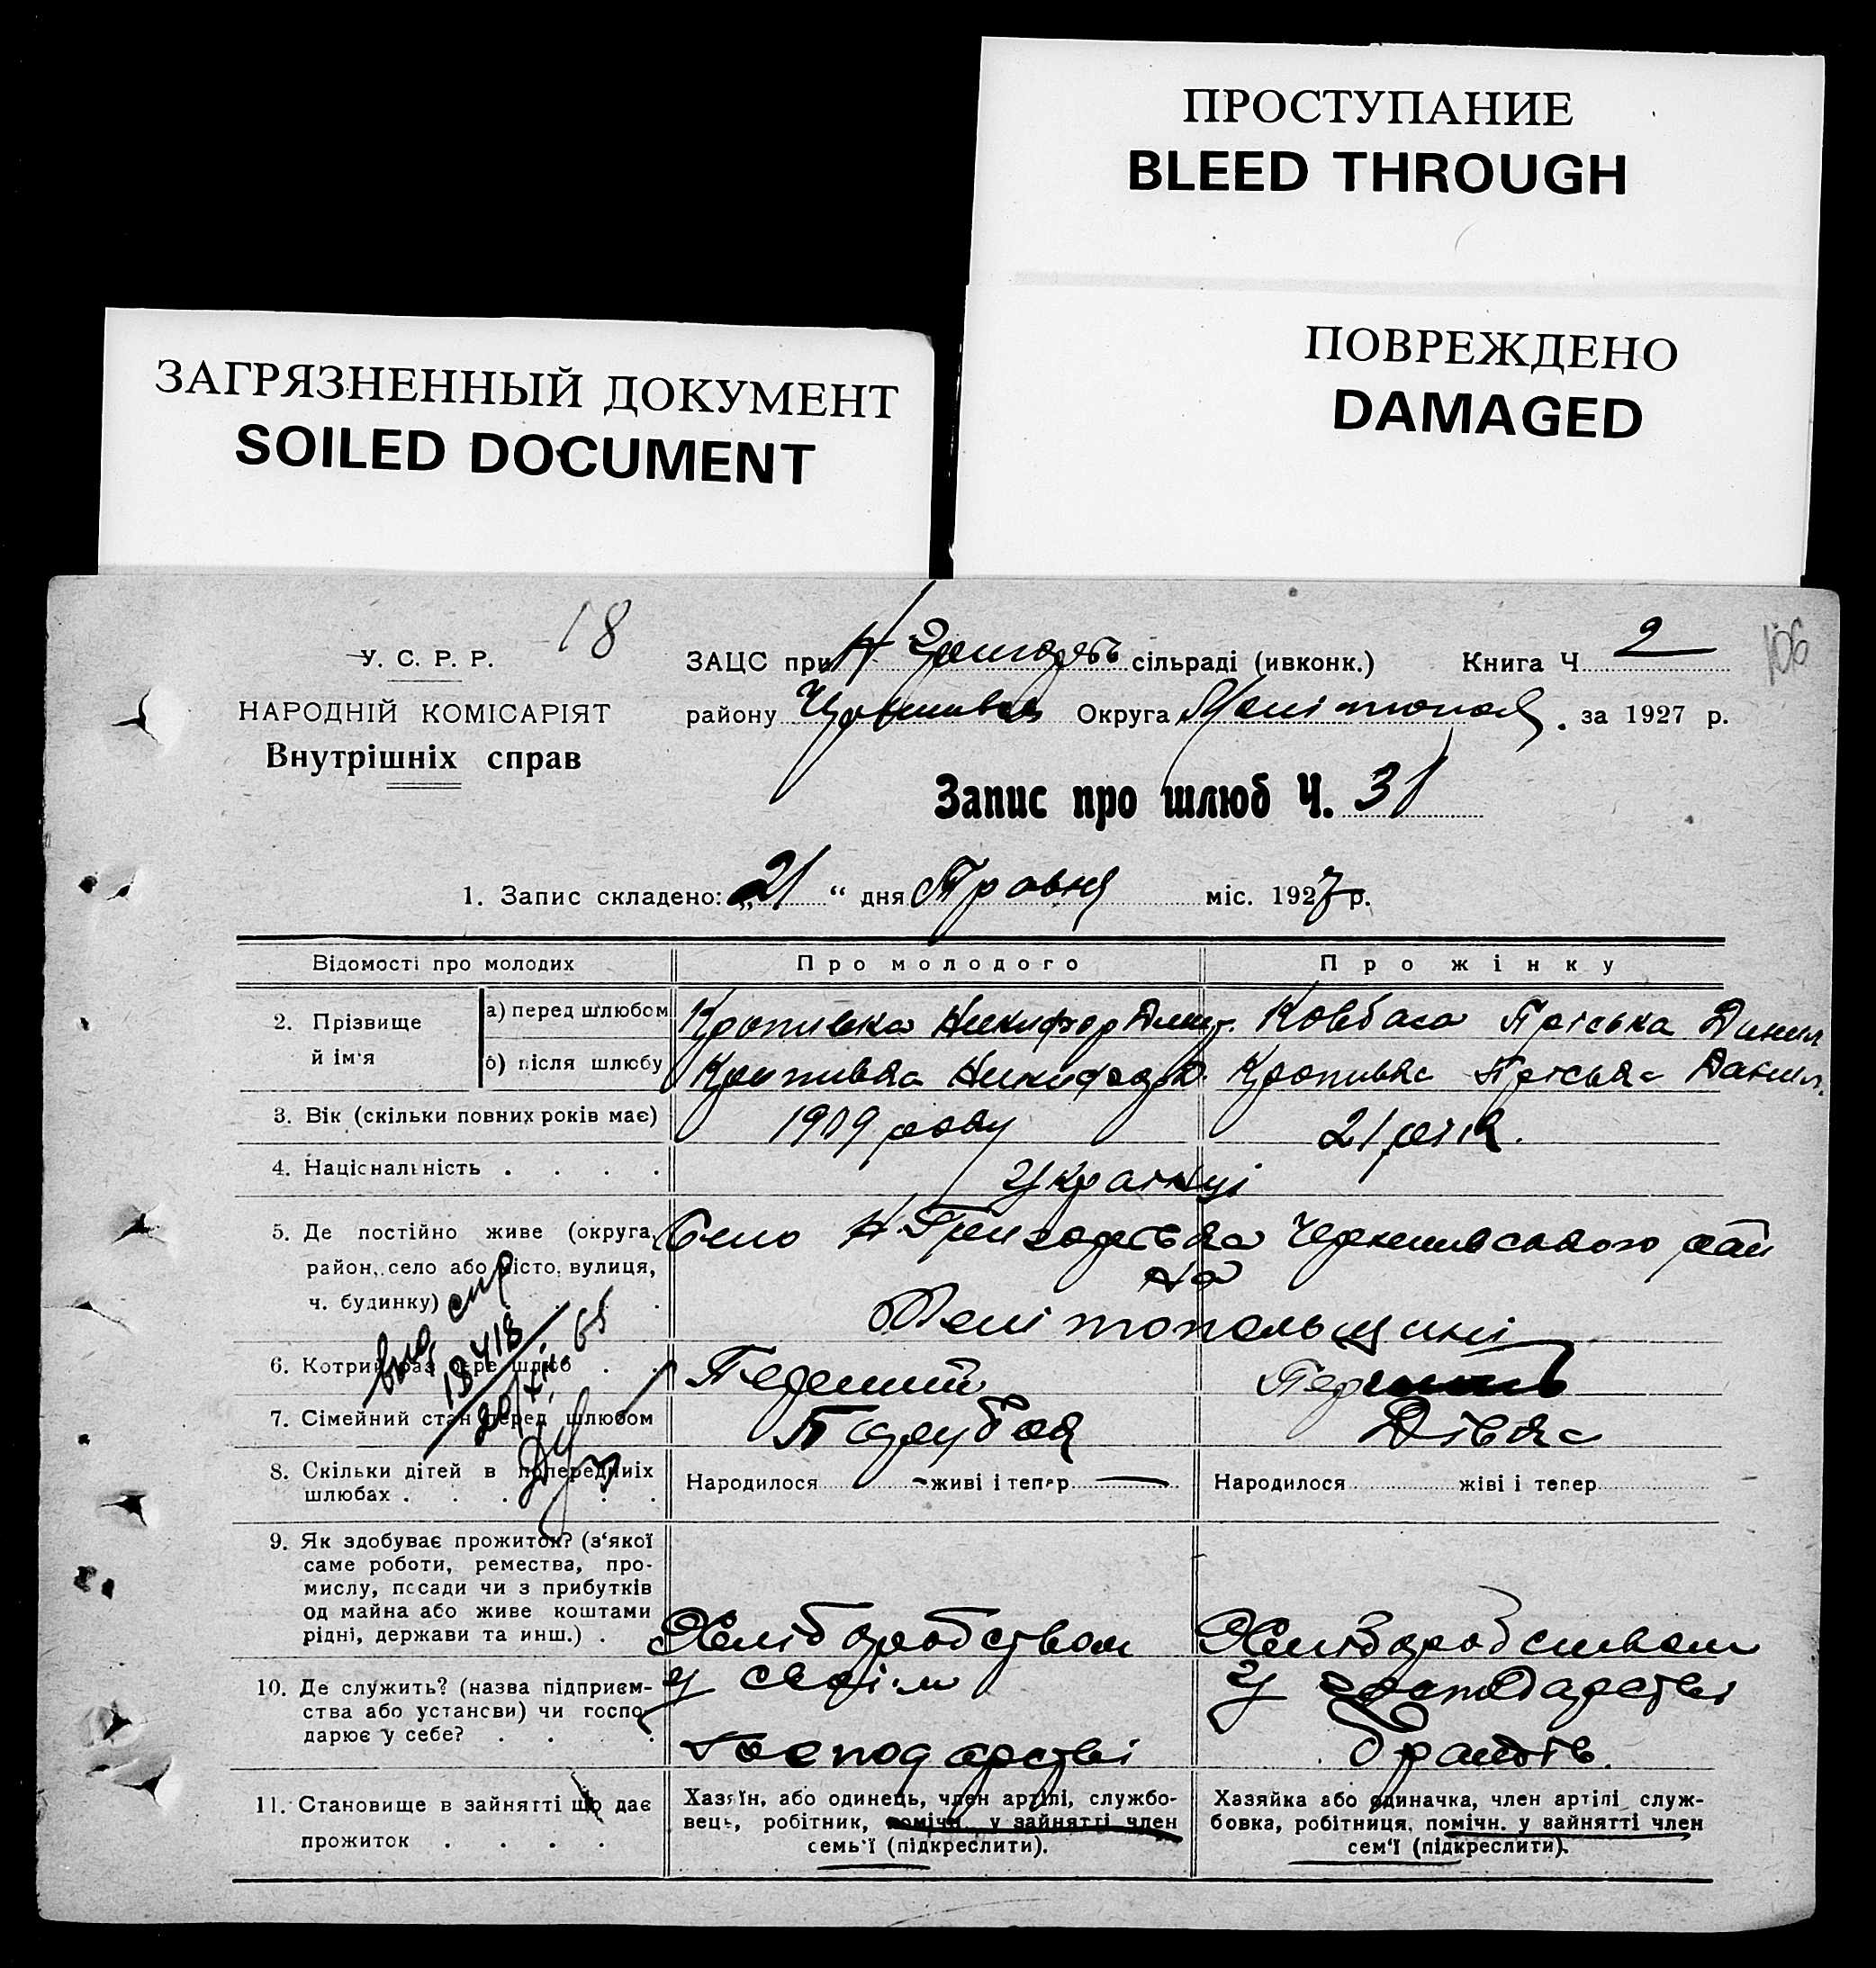 ПРОСТУПАНИЕ
BLEED THROUGH
ПОВРЕЖДЕНО
DAMAGED
ЗАГРЯЗНЕННЫЙ ДОКУМЕНТ
SOILED DOCUMENT
18
106
У. С. Р. Р.
НАРОДНІЙ КОМІСАРІЯТ
Внутрішніх справ
ЗАЦС при Н сільраді (ивконк.) Книга Ч. 2
району Округа Мелітополь. за 1927 р.
Запис про шлюб Ч. 31
1. Запис складено: „21“ дня Травня міс. 1927 р.
Відомості про молодих
Про молодого
Про жінку
2. Прізвище й ім'я
а) перед шлюбом
Кропивка Никифор Дмит.
Ковбаса Пріська Данил
б) після шлюбу
Кропивка Никифор Д.
Кропивка Пріська Данил.
3. Вік (скільки повних років має)
1909 року
21 рік.
4. Національність . . . .
Українці
5. Де постійно живе (округа,
район, село або місто, вулиця,
ч. будинку)
Село Н Григорівка Чернигівського рай
на
Мелітопольщині
6. Котрий раз бере шлюб . .
Перший
7. Сімейний стан перед шлюбом
Парубок
Дівка
18418
20/XII. 65
8. Скільки дітей в попередніх
шлюбах . . . . . .
Народилося - живі і тепер —
Народилося живі і тепер
9. Як здобуває прожиток? (з'якої
саме роботи, ремества, про-
мислу, посади чи з прибутків
од майна або живе коштами
рідні, держави та инш.) .
Хліборобством
Хліборобством
10. Де служить? (назва підприєм-
ства або установи) чи госпо-
дарює у себе? . . . .
у своїм
Господарстві
У господарстві
11. Становище в зайнятті що дає
прожиток . . . .
Хазяїн, або одинець, член артілі, службо-
вець, робітник, помічн. у зайнятті член
семь'ї (підкреслити).
Хазяйка або одиначка, член артілі служ-
бовка, робітниця, помічн. у зайнятті член
сем'ї (підкреслити).